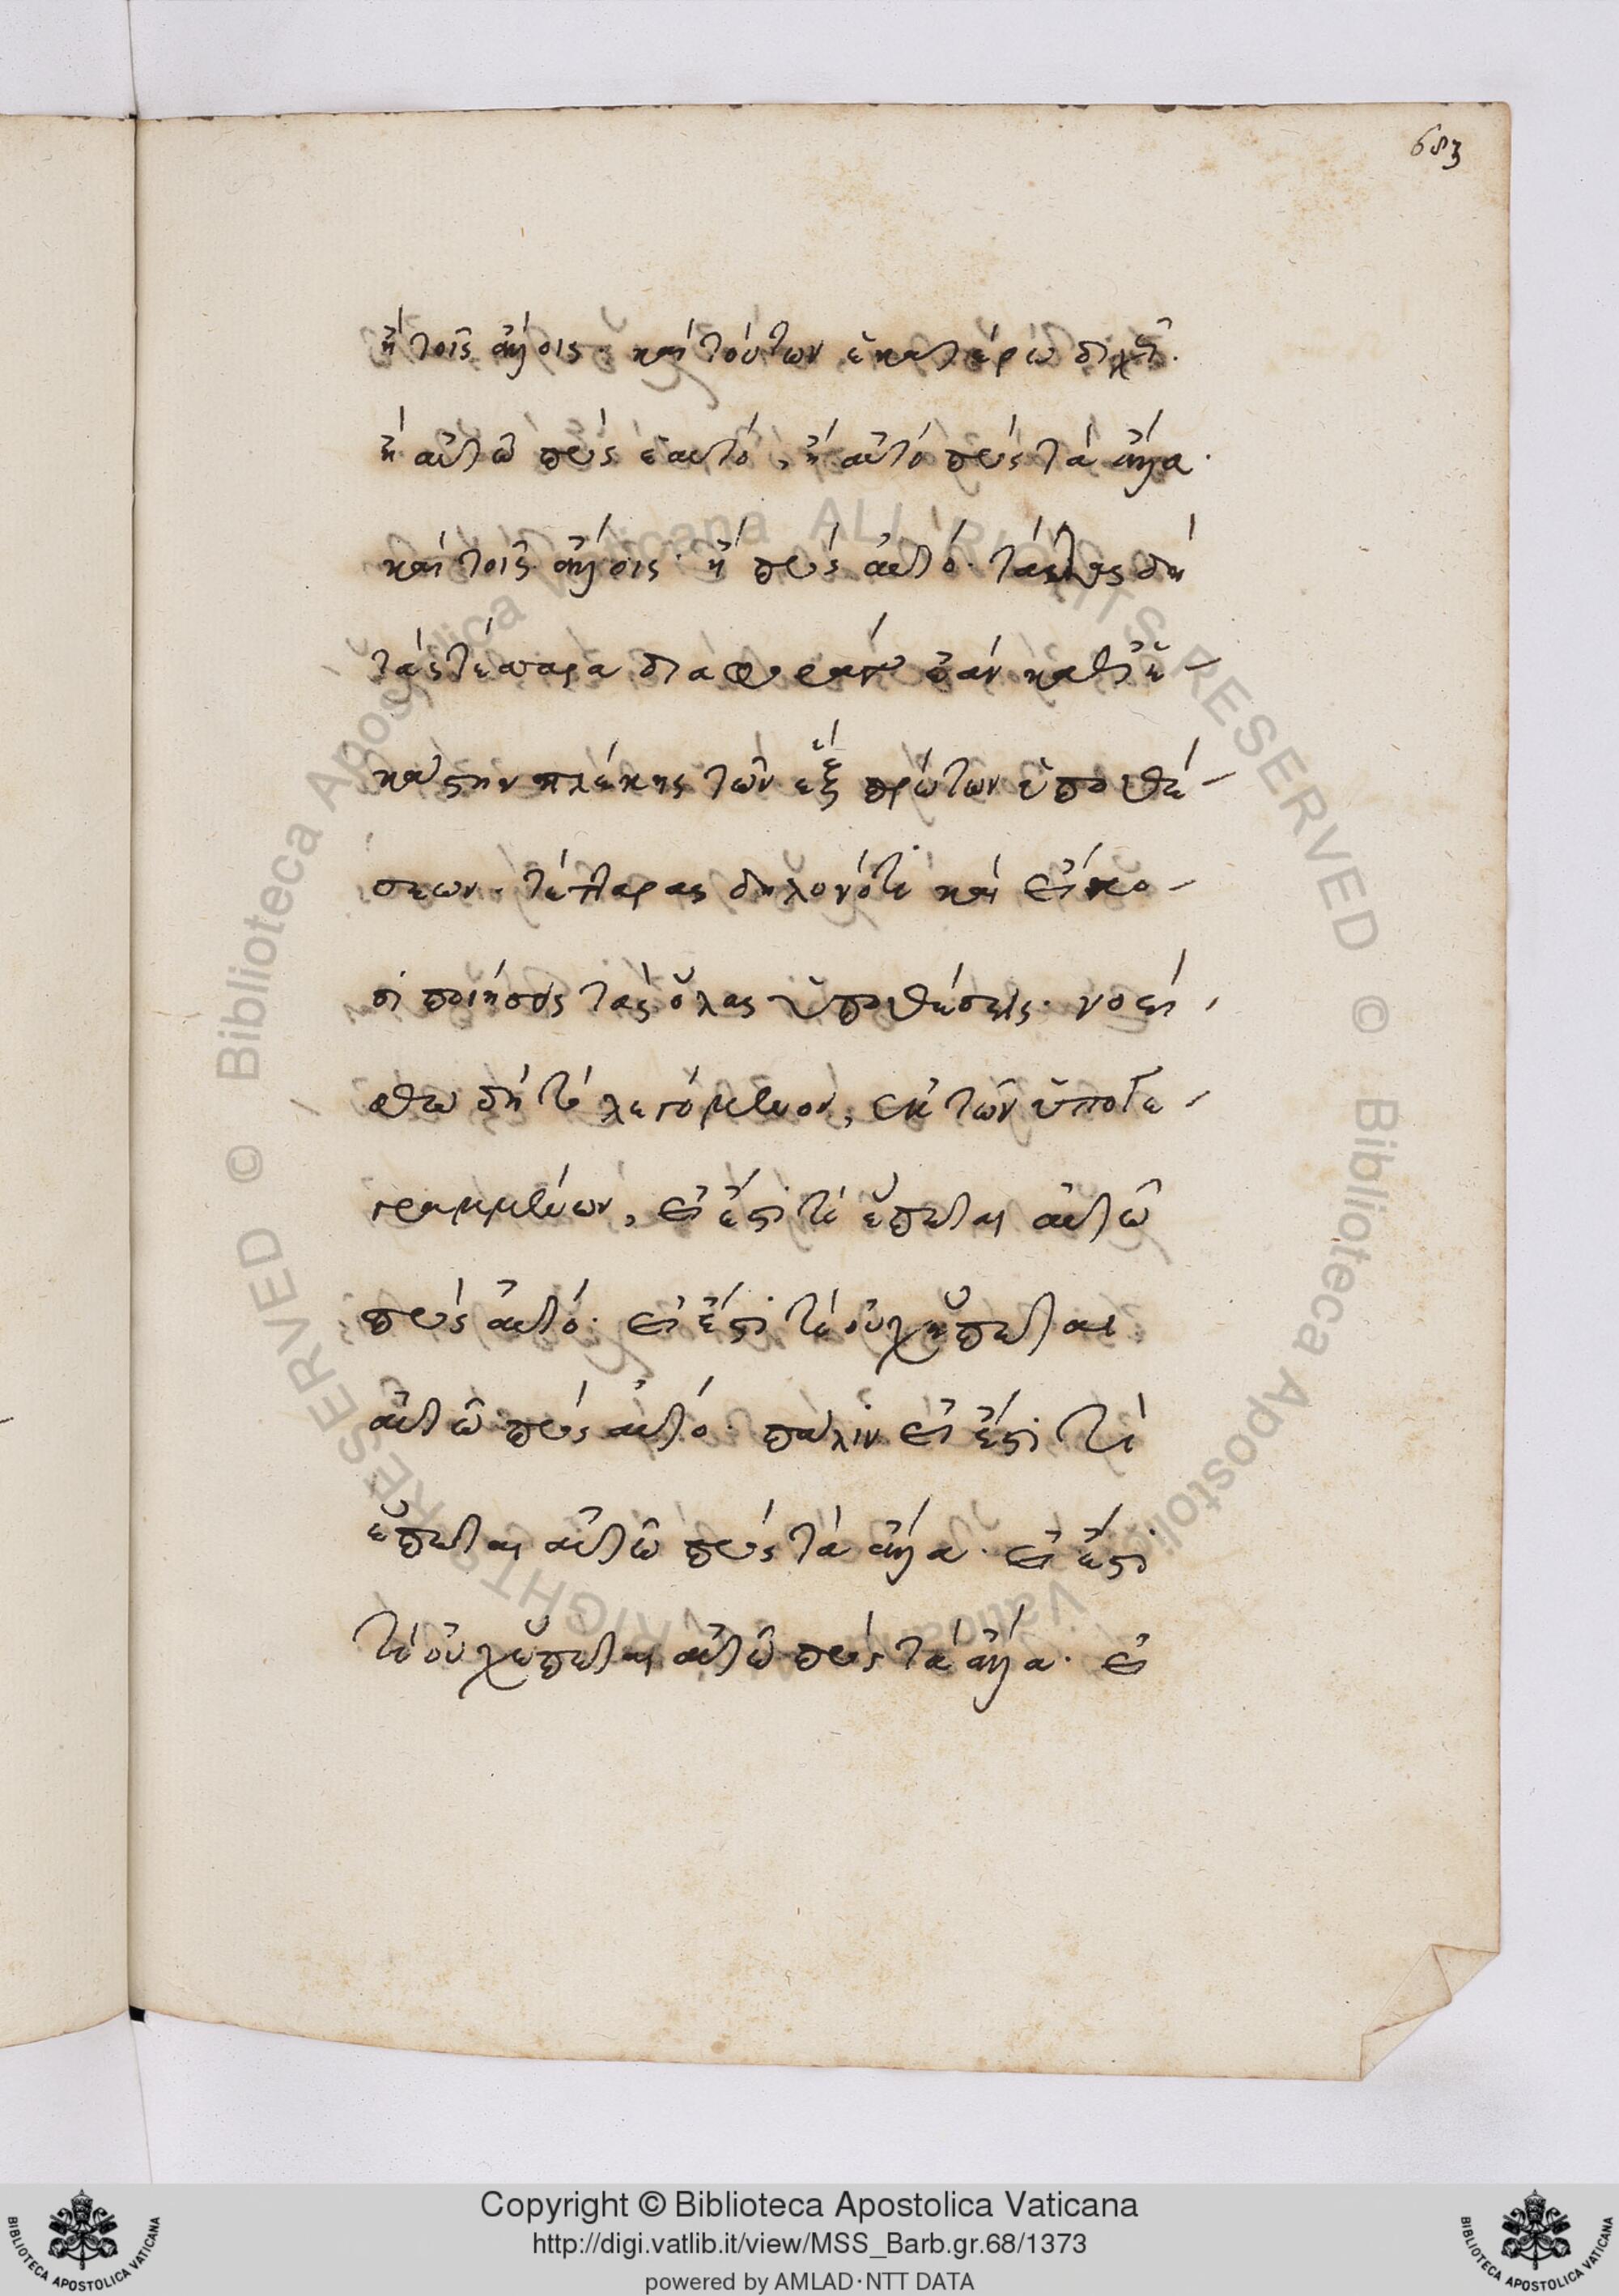 683
ἢ τοῖς ἄλλοις· καὶ τούτων ἑκατέρω διχῆ·
ἢ αὐτῶ πρὸς ἑαυτό, ἢ αὐτό πρὸς τὰ ἄλλα·
καὶ τοῖς ἄλλοις ἢ πρὸς αὐτό· ταύτας δὴ
τὰς τέσσαρα διαφορὰς ἐὰν καθ' ἑ-
κάστην πλέκης τῶν ἓξ πρώτων ὑποθέ-
σεων· τέτταρας δηλονότι καὶ εἴκο-
σι ποιήσεις τὰς ὅλας ὑποθέσεις· νοεί-
σθω δὴ τὸ λεγόμενον, ἐκ τῶν ὑπογε-
γραμμένων, εἰ ἔστι τί ἕπεται αὐτῶ
πρὸς αὐτό· εἰ ἔστι τί οὐχ ἕπεται
αὐτῶ πρὸς αὐτό· πάλιν εἰ ἔστι τί
ἕπεται αὐτῶ πρὸς τὰ ἄλλα· εἰ ἔστι
τί οὐχ ἕπεται αὐτῶ πρὸς τὰ ἄλλα· εἰ
© Biblioteca Apostolica Vaticana ALL RIGHTS RESERVED © Biblioteca Apostolica Vaticana ALL RIGHTS RESERVED
Copyright © Biblioteca Apostolica Vaticana
http://digi.vatlib.it/view/MSS_Barb.gr.68/1373
powered by AMLAD·NTT DATA
BIBLIOTECA APOSTOLICA VATICANA
BIBLIOTECA APOSTOLICA VATICANA